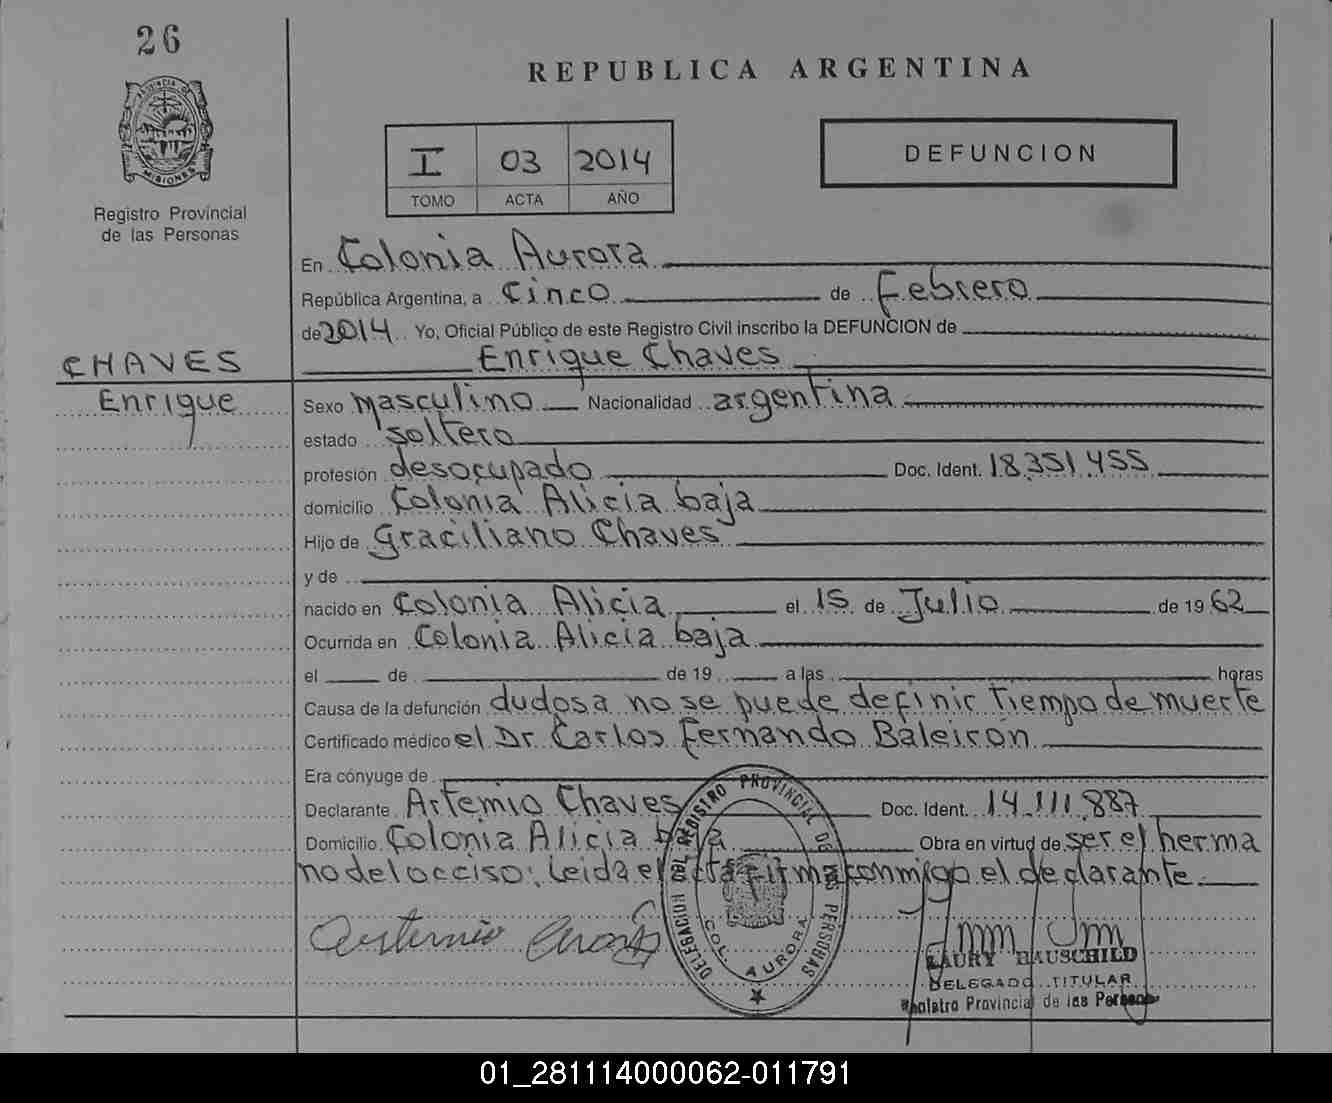 26
PROVINCIA DE
MISIONES
Registro Provincial
de las Personas
REPUBLICA ARGENTINA
I 03 2014
TOMO ACTA AÑO
DEFUNCION
En Colonia Aurora
República Argentina, a Cinco de Febrero
de 2014 Yo, Oficial Público de este Registro Civil inscribo la DEFUNCION de
CHAVES Enrique Chaves
Enrique Sexo Masculino Nacionalidad argentina
estado Soltero
profesión desocupado Doc. Ident. 18.351.455
domicilio Colonia Alicia baja
Hijo de Graciliano Chaves
y de
nacido en Colonia Alicia el 15 de Julio de 1962
Ocurrida en Colonia Alicia baja
el de de 19 a las horas
Causa de la defunción dudosa no se puede definir tiempo de muerte
Certificado médico el Dr Carlos Fernando Baleiron
Era cónyuge de
Declarante Artemio Chaves Doc. Ident. 14.111.887
Domicilio Colonia Alicia baja Obra en virtud de ser el herma
no del occiso; Leida el acta firma conmigo el declarante
DELEGACION DEL REGISTRO PROVINCIAL DE LAS PERSONAS
COL. AURORA
LAURY HAUSCHILD
DELEGADO TITULAR
Registro Provincial de las Personas
01_281114000062-011791